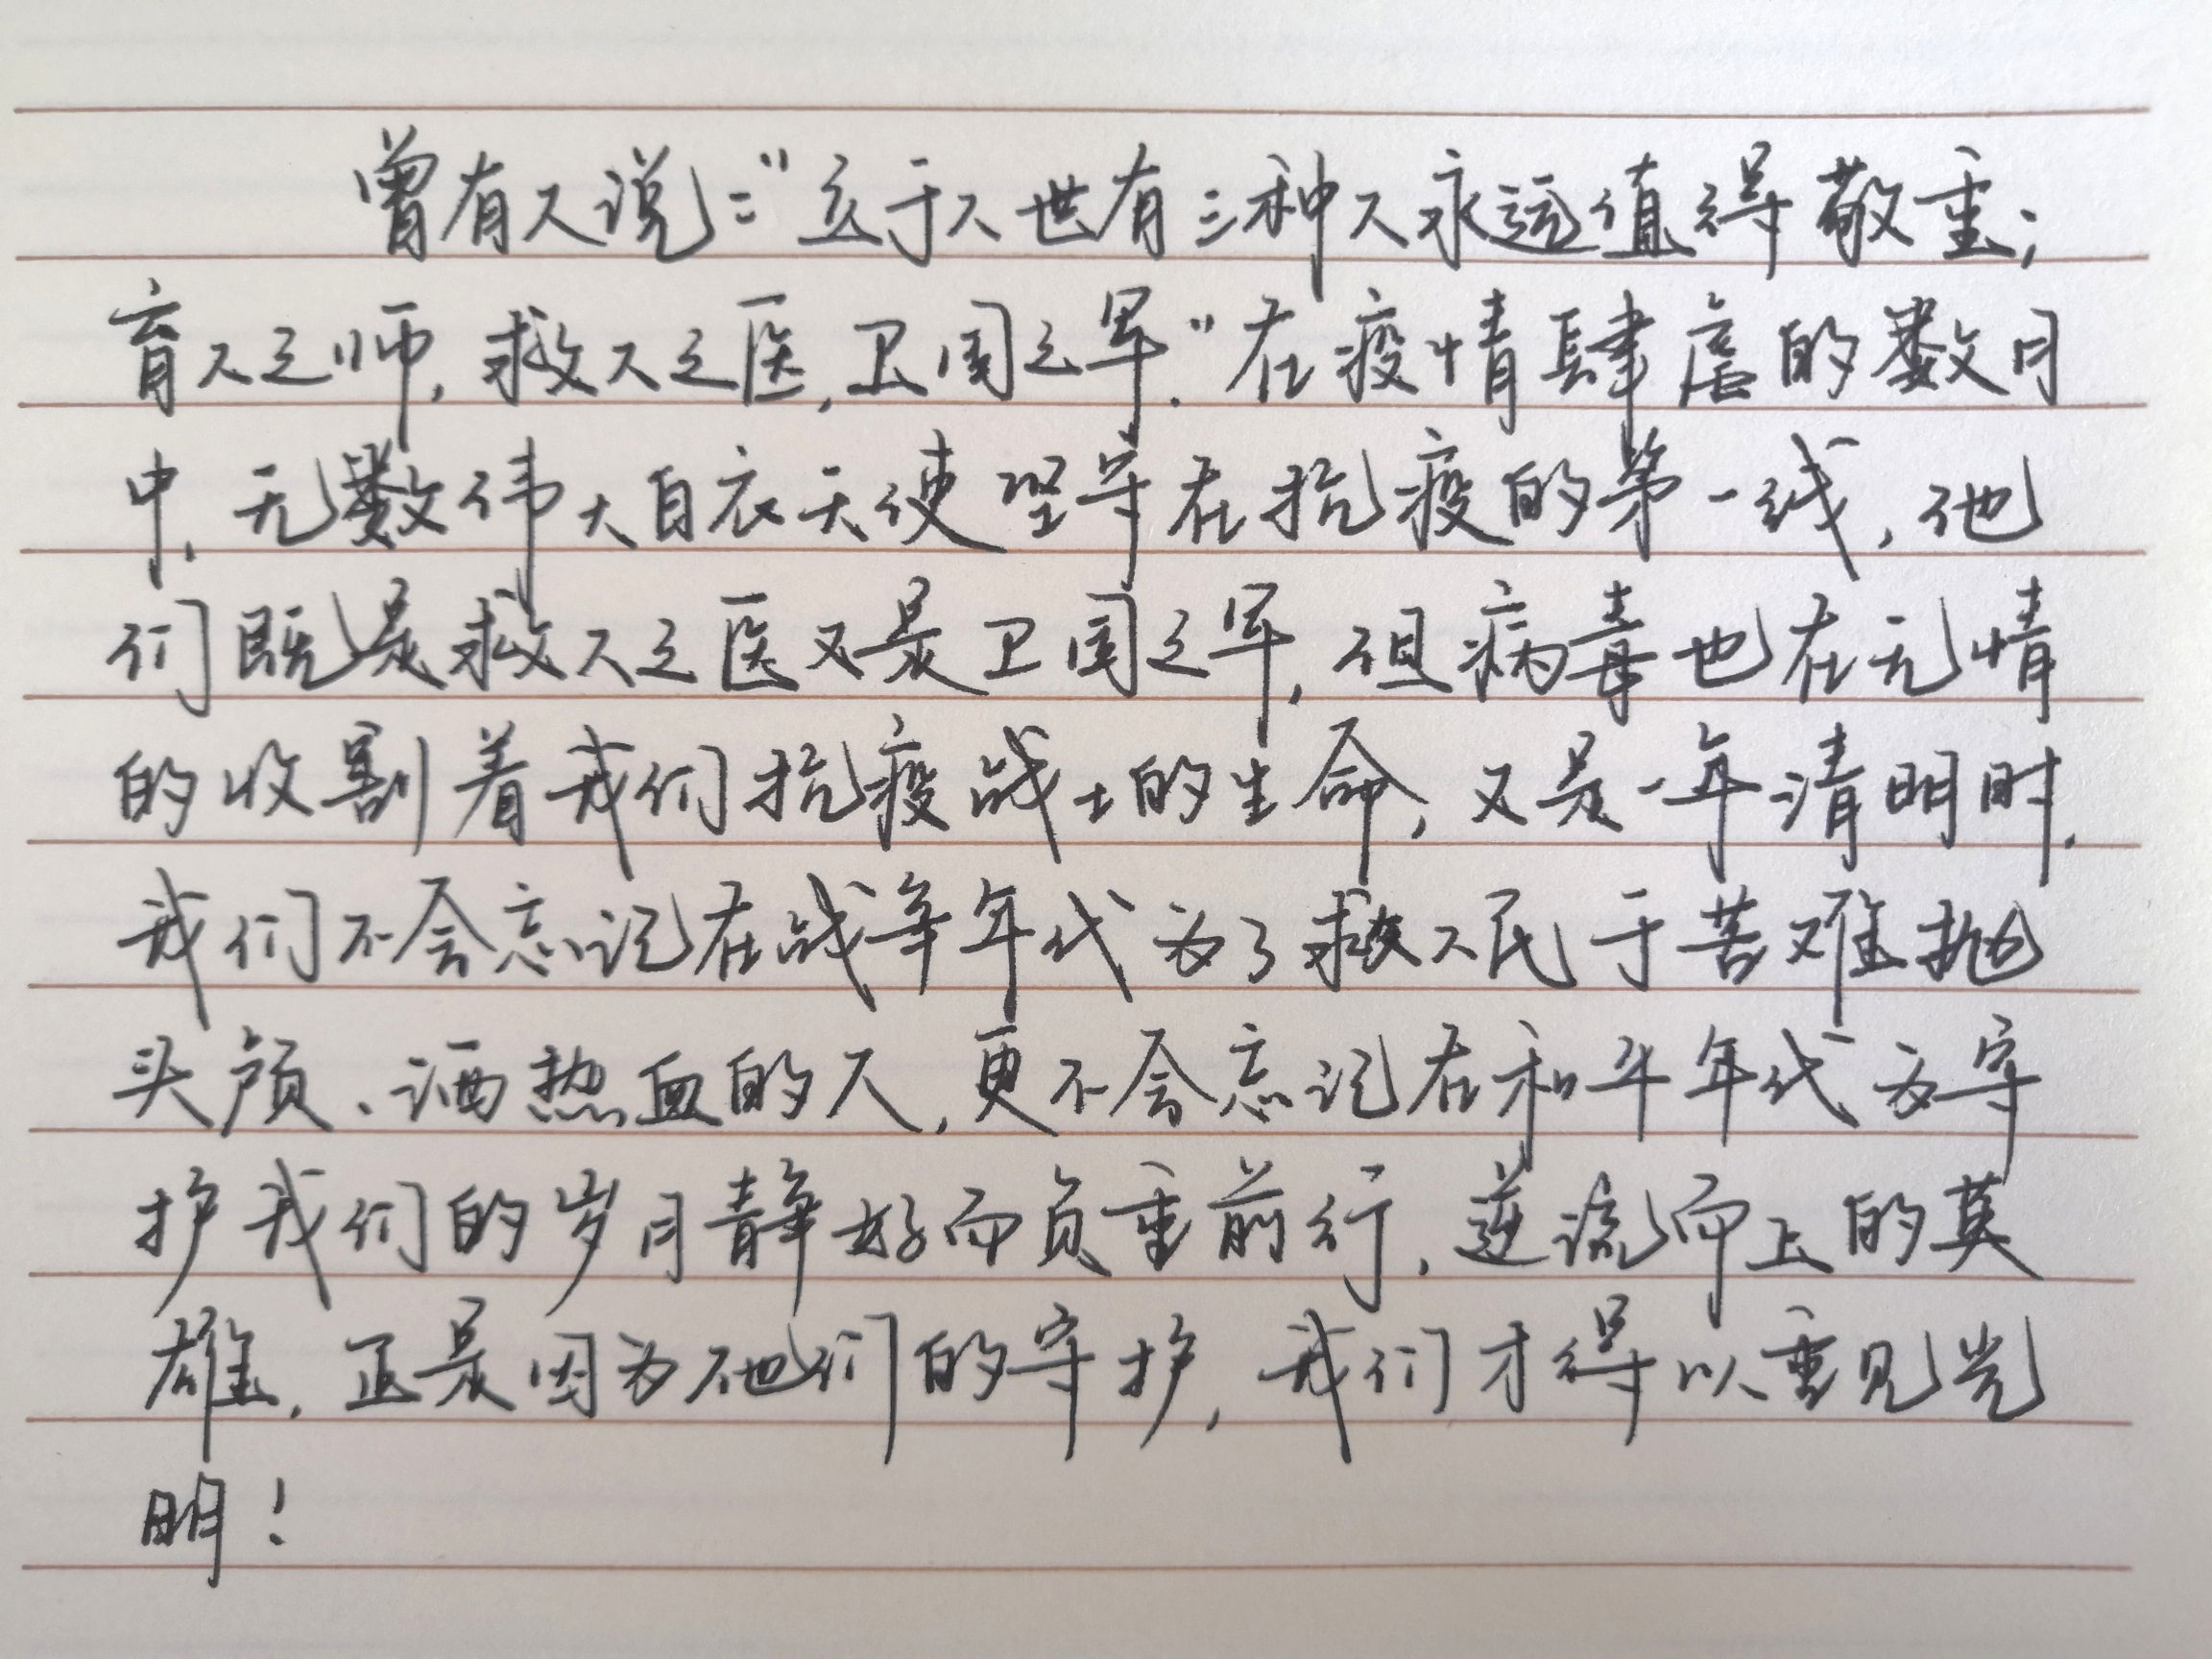 曾有人说："立于人世有三种人永远值得敬重；
育人之师，救人之医，卫国之军."在疫情肆虐的数月
中，无数伟大白衣天使坚守在抗疫的第一线，他
们既是救人之医又是卫国之军，但病毒也在无情
的收割着我们抗疫战士的生命，又是一年清明时，
我们不会忘记在战争年代为了救人民于苦难抛
头颅、洒热血的人，更不会忘记在和平年代为守
护我们的岁月静好而负重前行，逆流而上的英
雄，正是因为他们的守护，我们才得以重见光
明！